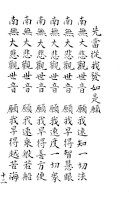 先當從我發如是願
南無大悲觀世音　願我速知一切法
南無大悲觀世音　願我早得智慧眼
南無大悲觀世音　願我速度一切眾
南無大悲觀世音　願我早得善方便
南無大悲觀世音　願我速乘般若船
南無大悲觀世音　願我早得越苦海
十一